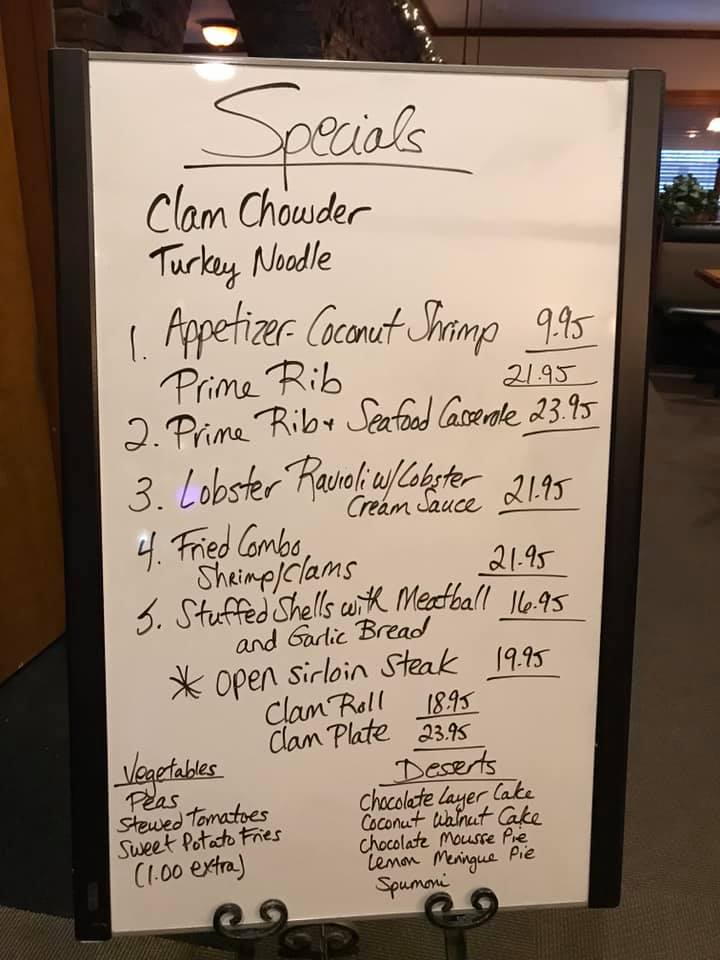 Specials
Clam Chowder
Turkey Noodle
1. Appetizer- Coconut Shrimp 9.95
Prime Rib 21.95
2. Prime Rib + Seafood Casserole 23.95
3. Lobster Ravioli w/Lobster
Cream Sauce 21.95
4. Fried Combo
Shrimp/Clams 21.95
5. Stuffed Shells with Meatball 16.95
and Garlic Bread
* open sirloin steak 19.95
Clam Roll 18.95
Clam Plate 23.95
Vegetables
Peas
Stewed Tomatoes
Sweet Potato Fries
(1.00 extra)
Desserts
Chocolate Layer Cake
Coconut Walnut Cake
Chocolate Mousse Pie
Lemon Meringue Pie
Spumoni